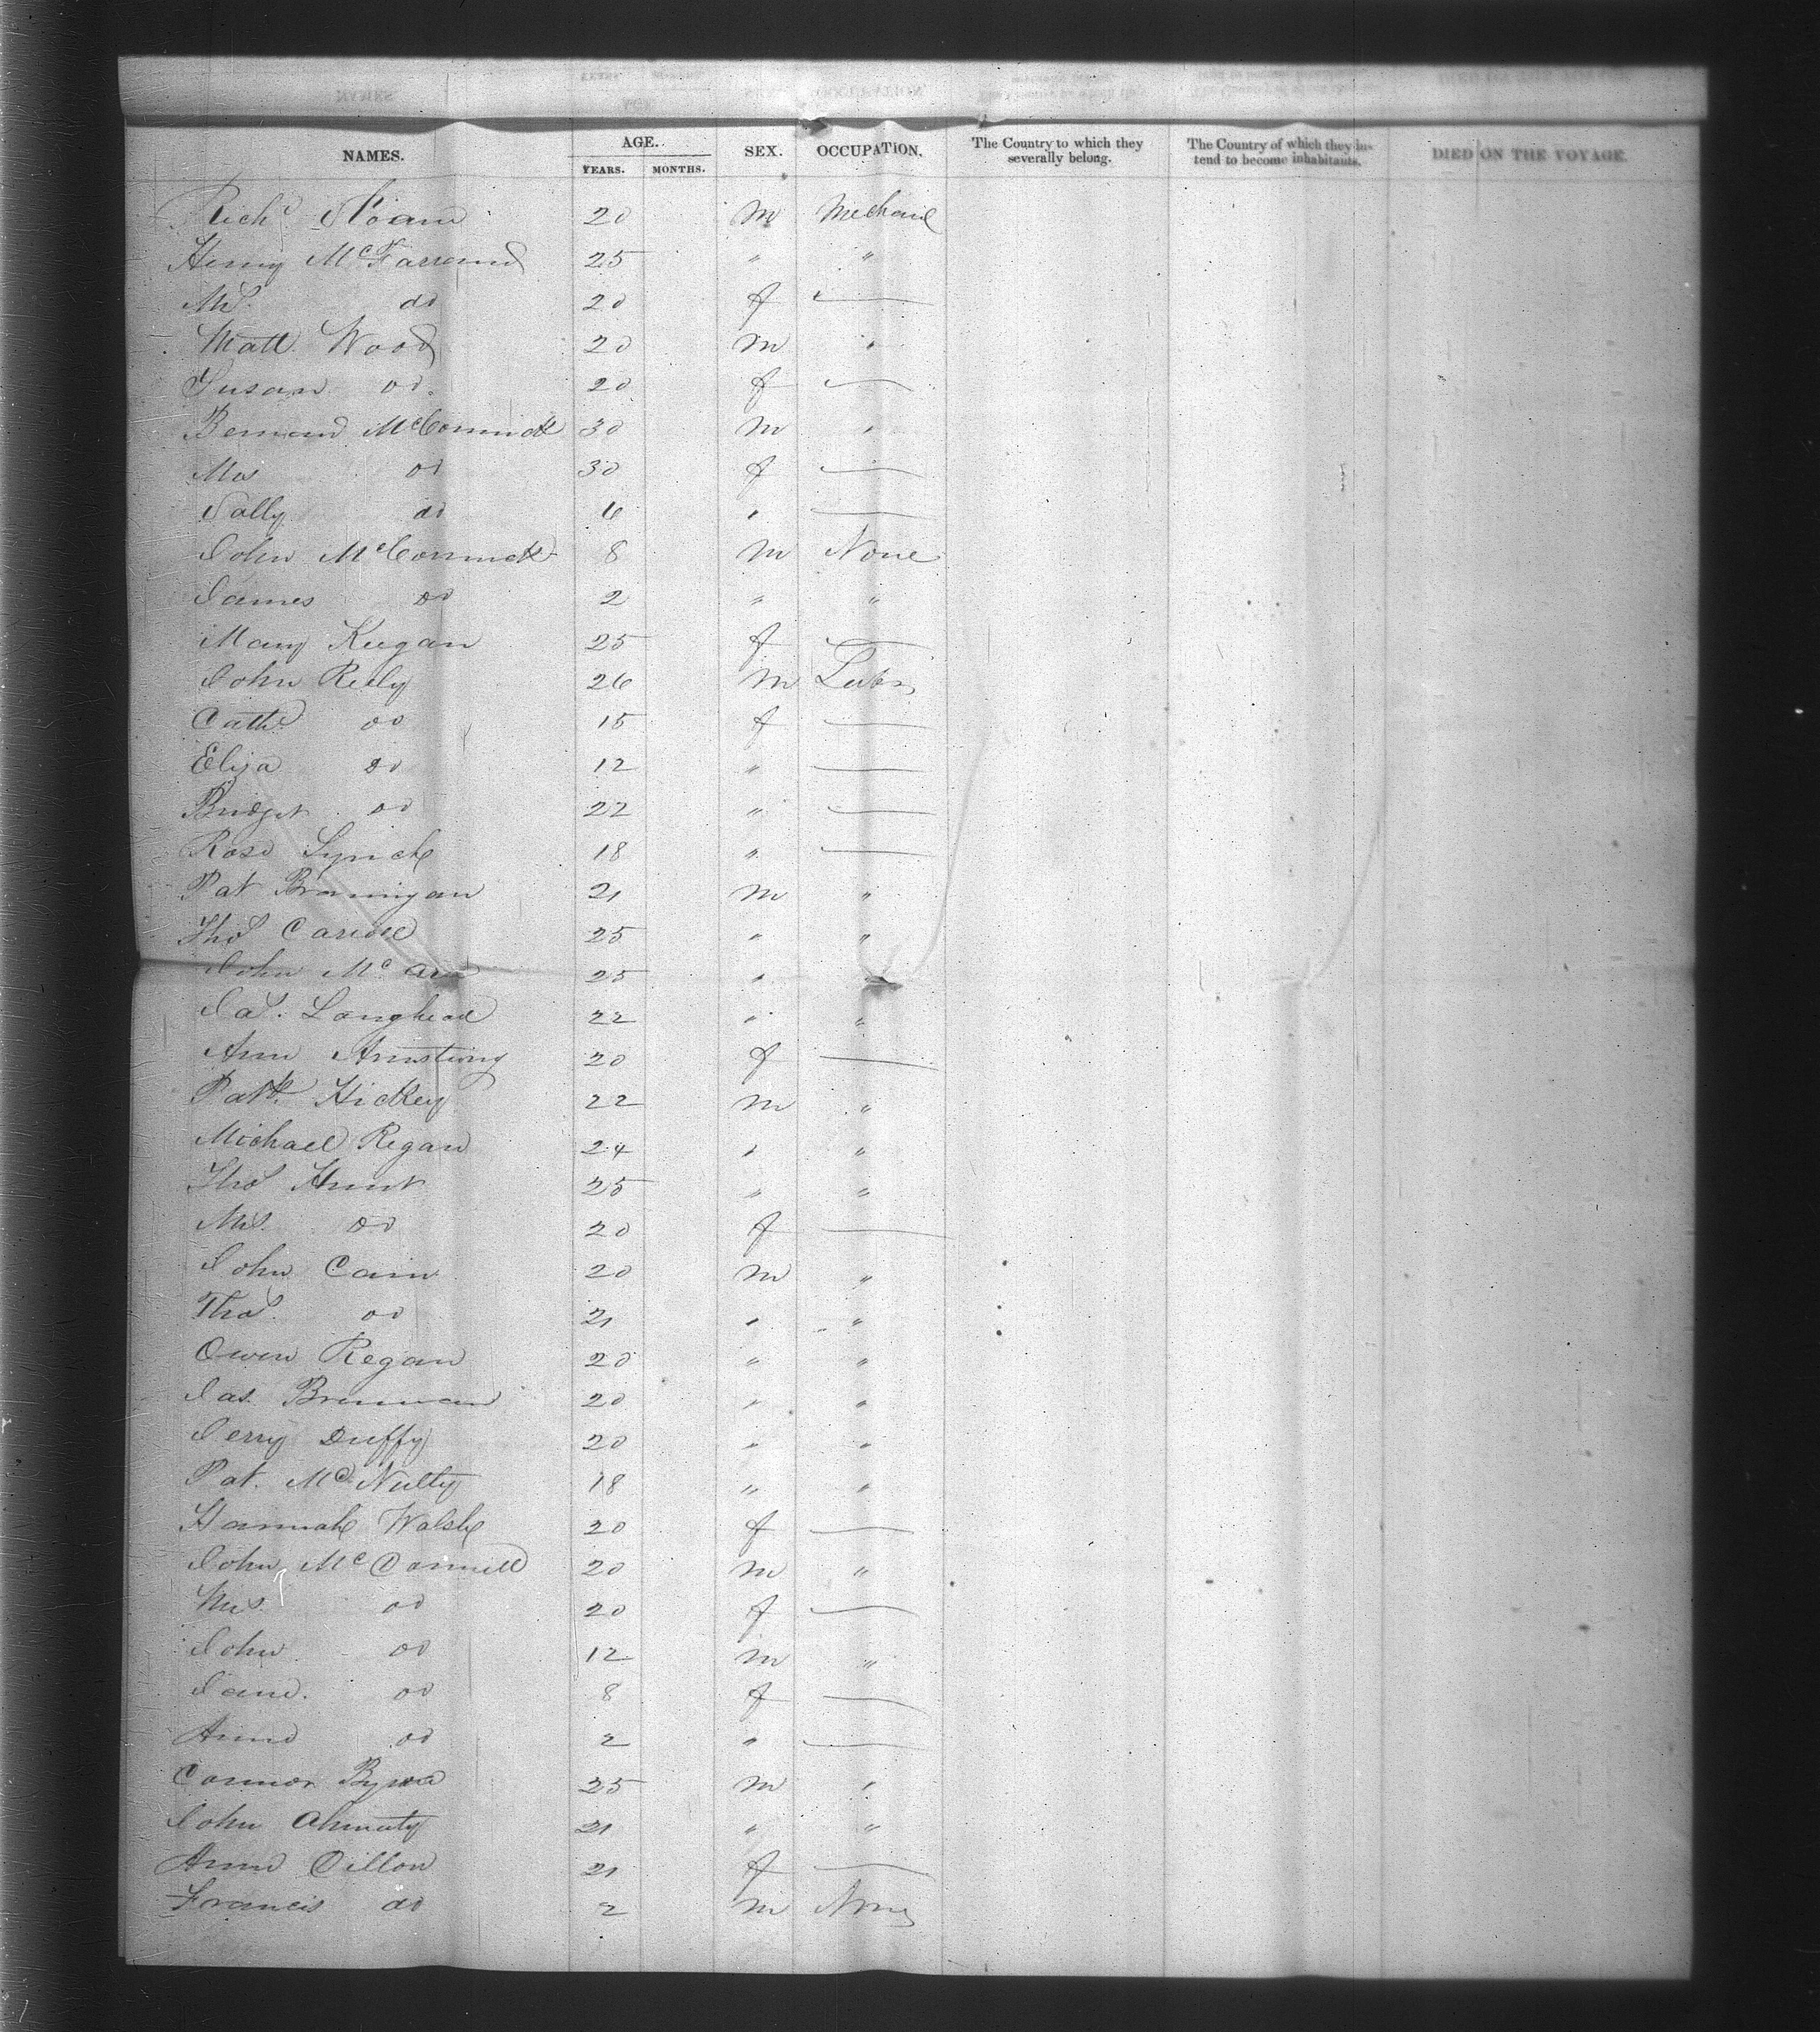 NAMES. AGE. YEARS. MONTHS. SEX. OCCUPATION. The Country to which they severally belong. The Country of which they intend to become inhabitants. DIED ON THE VOYAGE.
Richd Sloane 20 m Mechanic
Henry McFarrand 25 " "
Mrs. do 20 f —
Matt Wood 20 m "
Susan do. 20 f —
Bernard McCormick 30 m "
Mrs do 30 f —
Sally do 6 " —
John McCormick 8 m None
James do 2 " "
Mary Keegan 25 f —
John Reily 26 m Labr
Cath do 15 f —
Eliza do 12 " —
Bridget do 22 " —
Rose Lynch 18 " —
Pat Brannigan 21 m "
Thos 25 " "
John Mc 25 "
Jas. Langhead 22 " "
Ann Armstrong 20 f —
Patk. Hickey 22 m "
Michael Regan 24 " "
Thos Hunt 25 " "
Mrs. do 20 f —
John Cain 20 m "
Thos. do 21 " "
Owen Regan 20 " "
Jas. Brennan 20 " "
Jerry Duffy 20 " "
Pat. McNulty 18 " "
Hannah Walsh 20 f —
John McConnell 20 m "
Mrs. do 20 f —
John do 12 m "
Jane. do 8 f —
Anne do 2 " —
Connor Byrne 25 m "
John Ahmuty 21 " "
Anne Dillon 21 f —
Francis do 2 m None